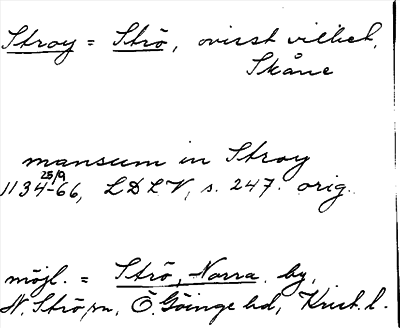 Stroy = Strö, ovisst vilket,
Skåne
mansum in Stroy
25/9
1134-66, LDLV, s. 247. orig.
möjl. = Strö, Norra by,
N. Strö sn, Ö. Göinge hd, Krist. l.